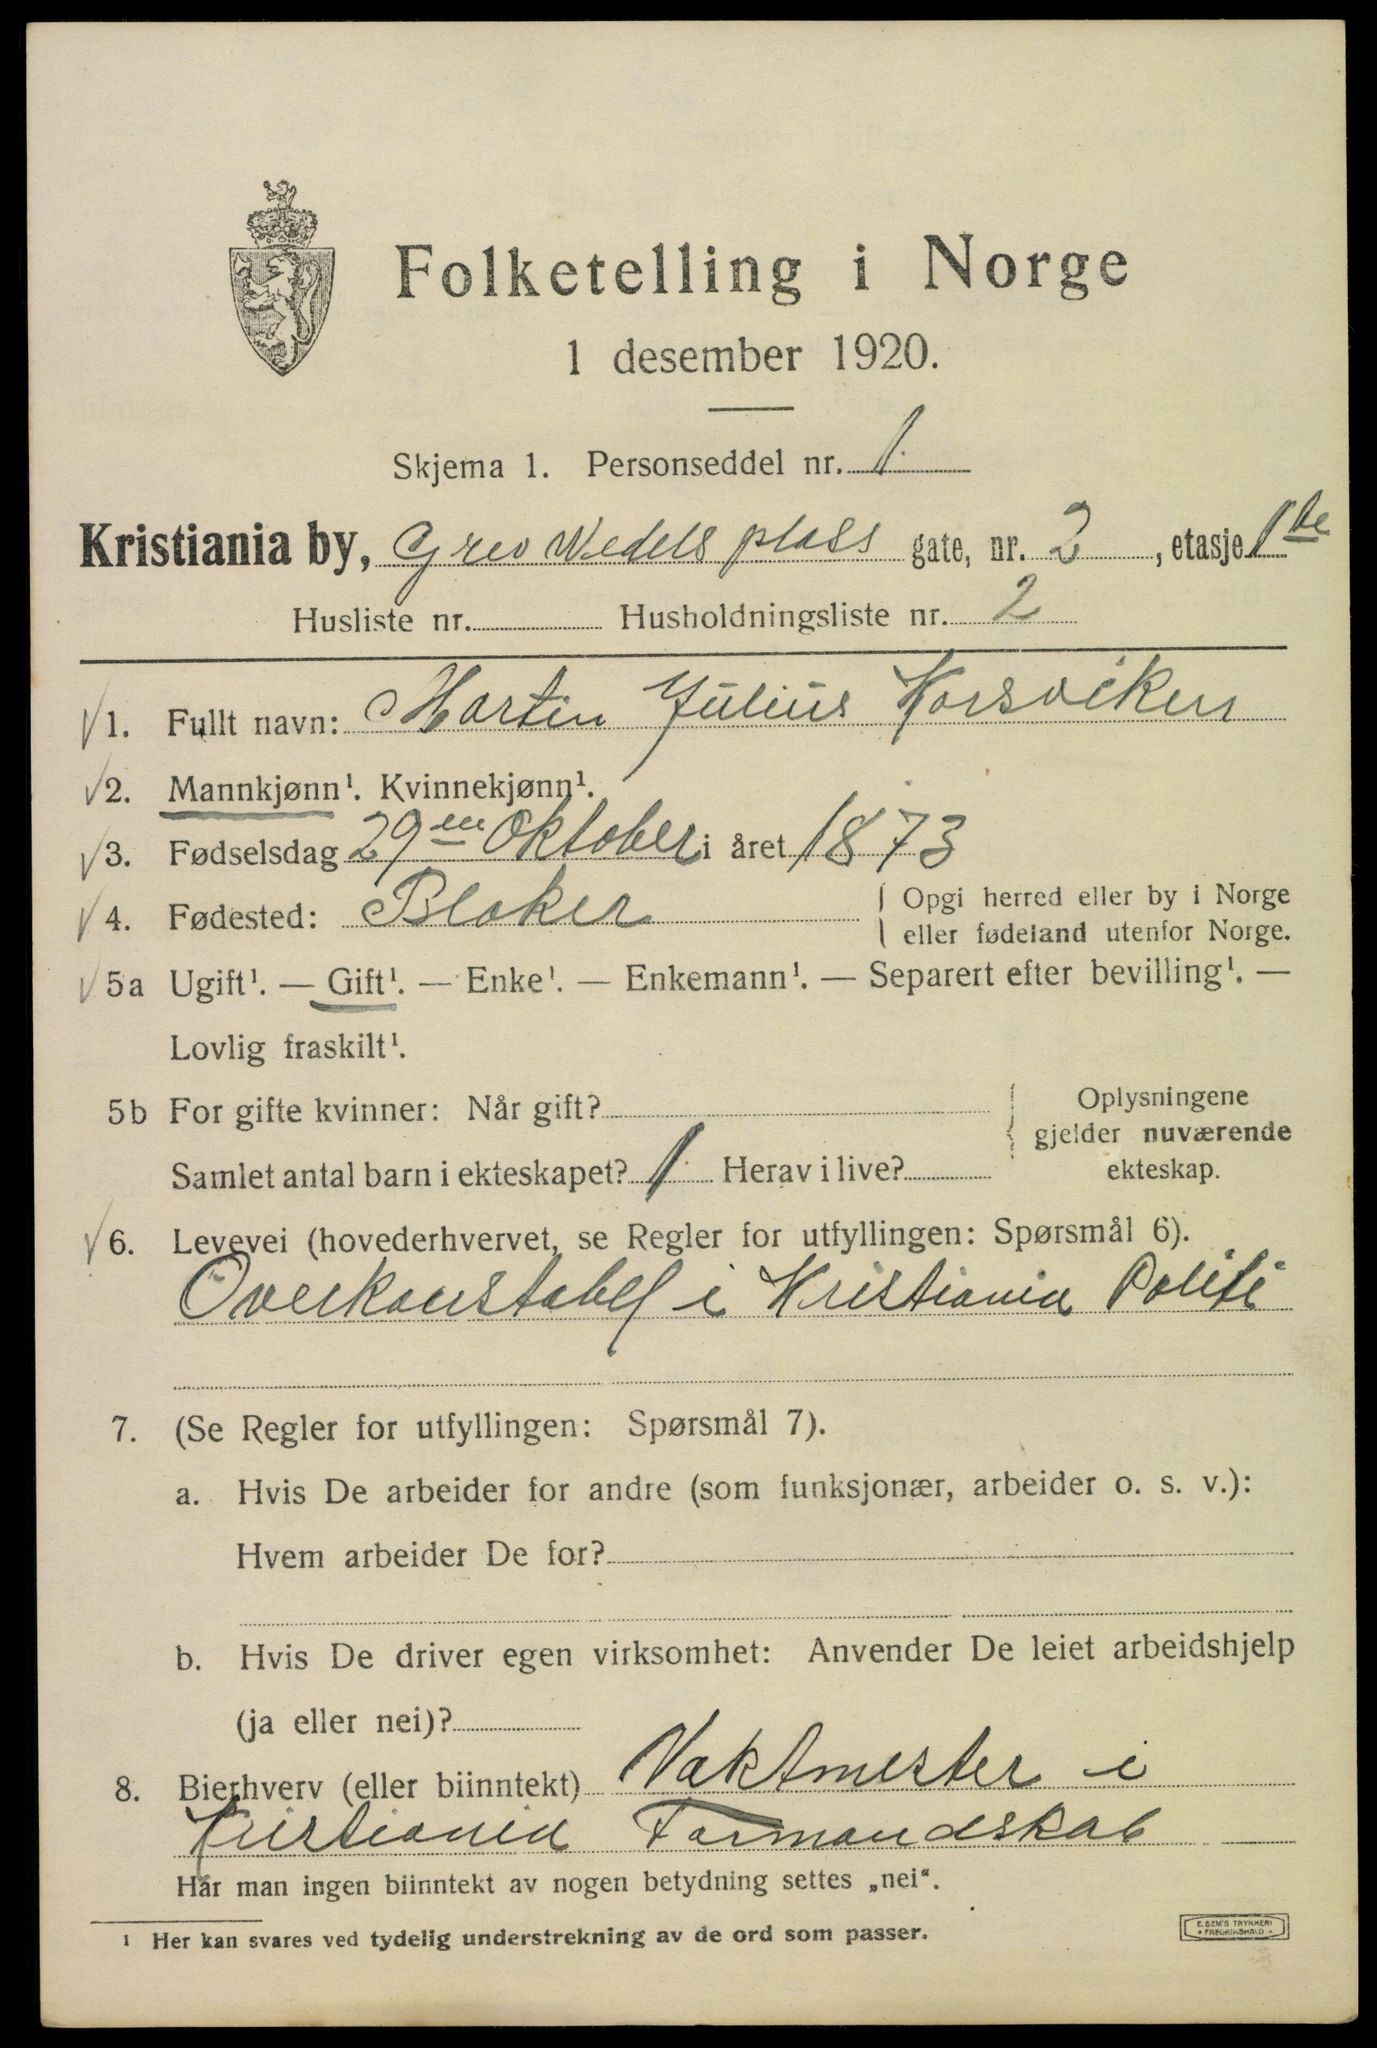 Folketelling i Norge
1 desember 1920.
Skjema 1. Personseddel nr. 1.
Kristiania by, Grev Wedels plass gate, nr. 2, etasje 1ste
Husliste nr. Husholdningsliste nr. 2
1. Fullt navn: Martin Julius Korsviken
2. Mannkjønn¹. Kvinnekjønn¹.
3. Fødselsdag 29en Oktober i året 1873
4. Fødested: Blaker { Opgi herred eller by i Norge
eller fødeland utenfor Norge.
5a Ugift¹. — Gift¹. — Enke¹. — Enkemann¹. — Separert efter bevilling¹. —
Lovlig fraskilt¹.
5b For gifte kvinner: Når gift? { Oplysningene
gjelder nuværende
Samlet antal barn i ekteskapet? 1. Herav i live? ekteskap.
6. Levevei (hovederhvervet, se Regler for utfyllingen: Spørsmål 6).
Overkonstabel i Kristiania Politi
7. (Se Regler for utfyllingen: Spørsmål 7).
a. Hvis De arbeider for andre (som funksjonær, arbeider o. s. v.):
Hvem arbeider De for?
b. Hvis De driver egen virksomhet: Anvender De leiet arbeidshjelp
(ja eller nei)?
8. Bierhverv (eller biinntekt) Vaktmester i
Kristiania Formandskab
Har man ingen biinntekt av nogen betydning settes „nei“.
¹ Her kan svares ved tydelig understrekning av de ord som passer.
E. SEM'S TRYKKERI
FREDRIKSHALD